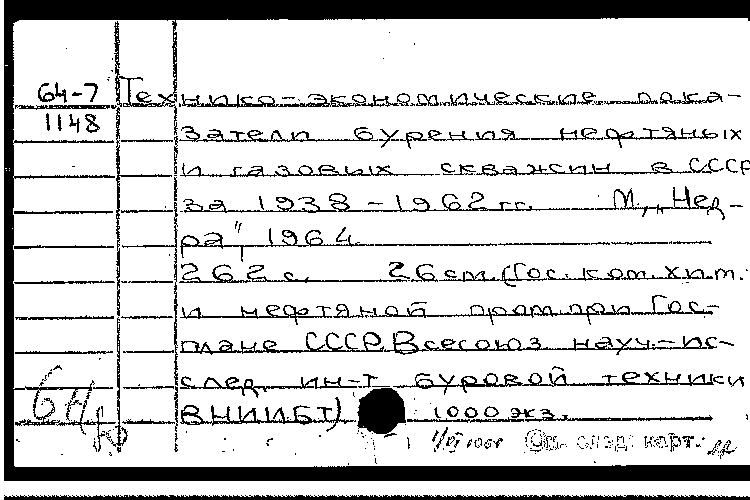 64-7 Технико-экономические пока-
1148 затели бурения нефтяных
и газовых скважин в СССР
за 1938-1962 гг. М., „Нед-
ра", 1964.
262 с. 26 см. (Гос. ком. хим.
и нефтяной пром. при Гос-
плане СССР. Всесоюз. науч.-ис-
след. ин-т буровой техники
ВНИИБТ) 1000 экз.
См. след. карт.